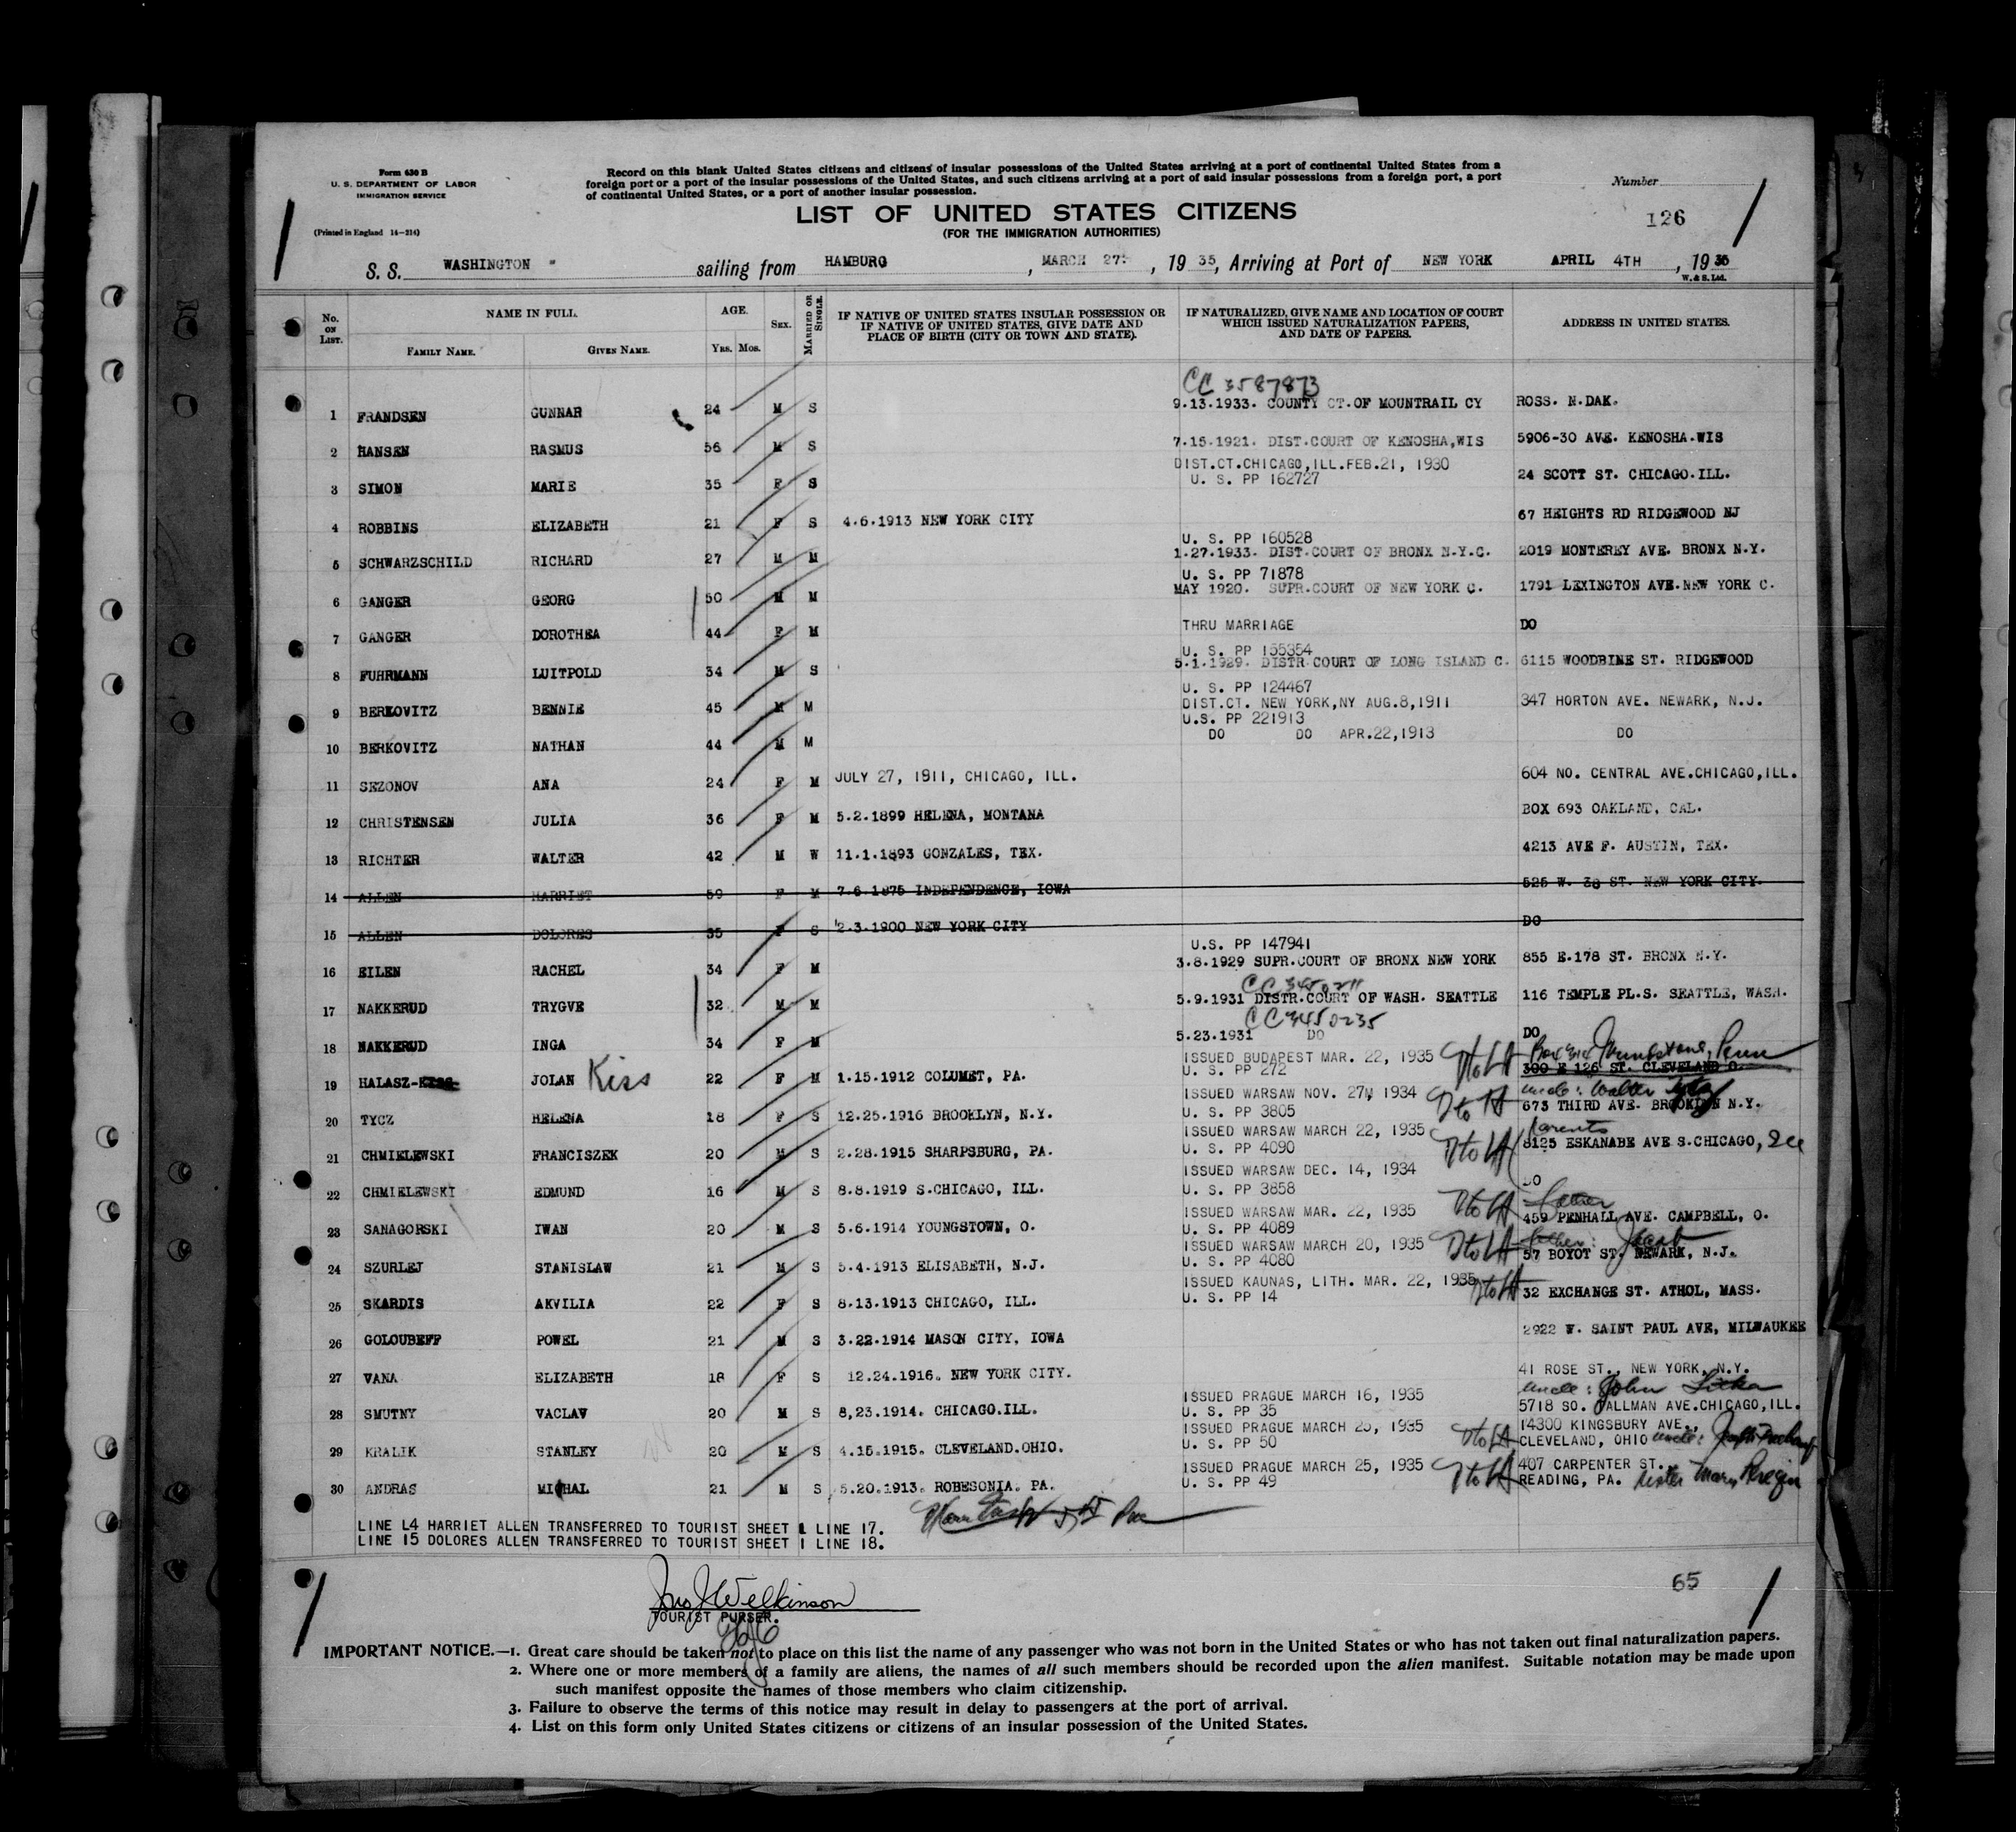 Form 630 B
U. S. DEPARTMENT OF LABOR
IMMIGRATION SERVICE
(Printed in England 14—214)
Record on this blank United States citizens and citizens of insular possessions of the United States arriving at a port of continental United States from a
foreign port or a port of the insular possessions of the United States, and such citizens arriving at a port of said insular possessions from a foreign port, a port
of continental United States, or a port of another insular possession.
Number
LIST OF UNITED STATES CITIZENS
(FOR THE IMMIGRATION AUTHORITIES)
126
S. S. WASHINGTON sailing from HAMBURG, MARCH 27, 1935, Arriving at Port of NEW YORK APRIL 4TH, 1935
W. & S. Ltd.
No. ON LIST. NAME IN FULL. FAMILY NAME. GIVEN NAME. AGE. YRS. MOS. SEX. MARRIED OR SINGLE. IF NATIVE OF UNITED STATES INSULAR POSSESSION OR IF NATIVE OF UNITED STATES, GIVE DATE AND PLACE OF BIRTH (CITY OR TOWN AND STATE). IF NATURALIZED, GIVE NAME AND LOCATION OF COURT WHICH ISSUED NATURALIZATION PAPERS, AND DATE OF PAPERS. ADDRESS IN UNITED STATES.
CC 3587873
1 FRANDSEN GUNNAR 24 M S 9.13.1933. COUNTY CT.OF MOUNTRAIL CY ROSS. N.DAK.
2 HANSEN RASMUS 56 M S 7.15.1921. DIST.COURT OF KENOSHA,WIS 5906-30 AVE. KENOSHA.WIS
DIST.CT.CHICAGO,ILL.FEB.21, 1930
3 SIMON MARIE 35 F S U. S. PP 162727 24 SCOTT ST. CHICAGO.ILL.
4 ROBBINS ELIZABETH 21 F S 4.6.1913 NEW YORK CITY 67 HEIGHTS RD RIDGEWOOD NJ
U. S. PP 160528
5 SCHWARZSCHILD RICHARD 27 M M 1.27.1933. DIST.COURT OF BRONX N.Y.C. 2019 MONTEREY AVE. BRONX N.Y.
U. S. PP 71878
6 GANGER GEORG 50 M M MAY 1920. SUPR.COURT OF NEW YORK C. 1791 LEXINGTON AVE.NEW YORK C.
7 GANGER DOROTHEA 44 F M THRU MARRIAGE DO
U. S. PP 155354
8 FUHRMANN LUITPOLD 34 M S 5.1.1929. DISTR.COURT OF LONG ISLAND C. 6115 WOODBINE ST. RIDGEWOOD
U. S. PP 124467
9 BERKOVITZ BENNIE 45 M M DIST.CT. NEW YORK,NY AUG.8,1911 347 HORTON AVE. NEWARK, N.J.
U.S. PP 221913
10 BERKOVITZ NATHAN 44 M M DO DO APR.22,1913 DO
11 SEZONOV ANA 24 F M JULY 27, 1911, CHICAGO, ILL. 604 NO. CENTRAL AVE.CHICAGO,ILL.
12 CHRISTENSEN JULIA 36 F M 5.2.1899 HELENA, MONTANA BOX 693 OAKLAND, CAL.
13 RICHTER WALTER 42 M W 11.1.1893 GONZALES, TEX. 4213 AVE F. AUSTIN, TEX.
14 ALLEN HARRIET 59 F M 7.6.1875 INDEPENDENCE, IOWA 525 W. 38 ST. NEW YORK CITY.
15 ALLEN DOLORES 35 F S 2.3.1900 NEW YORK CITY DO
U.S. PP 147941
16 EILEN RACHEL 34 F M 3.8.1929 SUPR.COURT OF BRONX NEW YORK 855 E.178 ST. BRONX N.Y.
17 NAKKERUD TRYGVE 32 M M 5.9.1931 DISTR.COURT OF WASH. SEATTLE 116 TEMPLE PL.S. SEATTLE, WASH.
CC 3450235
18 NAKKERUD INGA 34 F M 5.23.1931 DO DO
ISSUED BUDAPEST MAR. 22, 1935 Penn
19 HALASZ- JOLAN Kiss 22 F M 1.15.1912 COLUMET, PA. U. S. PP 272 300 E 126 ST. CLEVELAND O.
ISSUED WARSAW NOV. 27, 1934 uncle: Walter
20 TYCZ HELENA 18 F S 12.25.1916 BROOKLYN, N.Y. U. S. PP 3805 673 THIRD AVE. BROOKLYN N.Y.
ISSUED WARSAW MARCH 22, 1935 parents
21 CHMIELEWSKI FRANCISZEK 20 M S 2.28.1915 SHARPSBURG, PA. U. S. PP 4090 8125 ESKANABE AVE S.CHICAGO, Ill
ISSUED WARSAW DEC. 14, 1934
22 CHMIELEWSKI EDMUND 16 M S 8.8.1919 S.CHICAGO, ILL. U. S. PP 3858 DO
ISSUED WARSAW MAR. 22, 1935 father
23 SANAGORSKI IWAN 20 M S 5.6.1914 YOUNGSTOWN, O. U. S. PP 4089 459 PENHALL AVE. CAMPBELL, O.
ISSUED WARSAW MARCH 20, 1935 father: Jacob
24 SZURLEJ STANISLAW 21 M S 5.4.1913 ELISABETH, N.J. U. S. PP 4080 57 BOYOT ST. NEWARK, N.J.
ISSUED KAUNAS, LITH. MAR. 22, 1935
25 SKARDIS AKVILIA 22 F S 8.13.1913 CHICAGO, ILL. U. S. PP 14 32 EXCHANGE ST. ATHOL, MASS.
26 GOLOUBEFF POWEL 21 M S 3.22.1914 MASON CITY, IOWA 2922 W. SAINT PAUL AVE, MILWAUKEE
27 VANA ELIZABETH 18 F S 12.24.1916. NEW YORK CITY. 41 ROSE ST., NEW YORK, N.Y.
ISSUED PRAGUE MARCH 16, 1935 uncle: John
28 SMUTNY VACLAV 20 M S 8,23.1914. CHICAGO.ILL. U. S. PP 35 5718 SO. TALLMAN AVE.CHICAGO,ILL.
ISSUED PRAGUE MARCH 25, 1935 14300 KINGSBURY AVE.,
29 KRALIK STANLEY 20 M S 4.15.1915. CLEVELAND.OHIO. U. S. PP 50 CLEVELAND, OHIO uncle:
ISSUED PRAGUE MARCH 25, 1935 407 CARPENTER ST.,
30 ANDRAS MICHAL 21 M S 5.20.1913. ROBESONIA. PA. U. S. PP 49 READING, PA. sister Mary
LINE L4 HARRIET ALLEN TRANSFERRED TO TOURIST SHEET 1 LINE 17.
LINE 15 DOLORES ALLEN TRANSFERRED TO TOURIST SHEET 1 LINE 18.
65
Jno J Wilkinson
TOURIST PURSER.
IMPORTANT NOTICE.—1. Great care should be taken not to place on this list the name of any passenger who was not born in the United States or who has not taken out final naturalization papers.
2. Where one or more members of a family are aliens, the names of all such members should be recorded upon the alien manifest. Suitable notation may be made upon
such manifest opposite the names of those members who claim citizenship.
3. Failure to observe the terms of this notice may result in delay to passengers at the port of arrival.
4. List on this form only United States citizens or citizens of an insular possession of the United States.